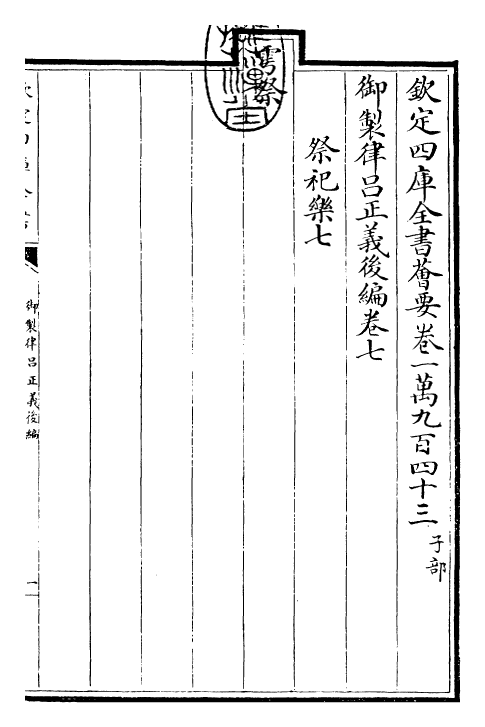 欽定四庫全書薈要卷一萬九百四十三 子部
御製律呂正義後編卷七
祭祀樂七
御製律呂正義後編
一